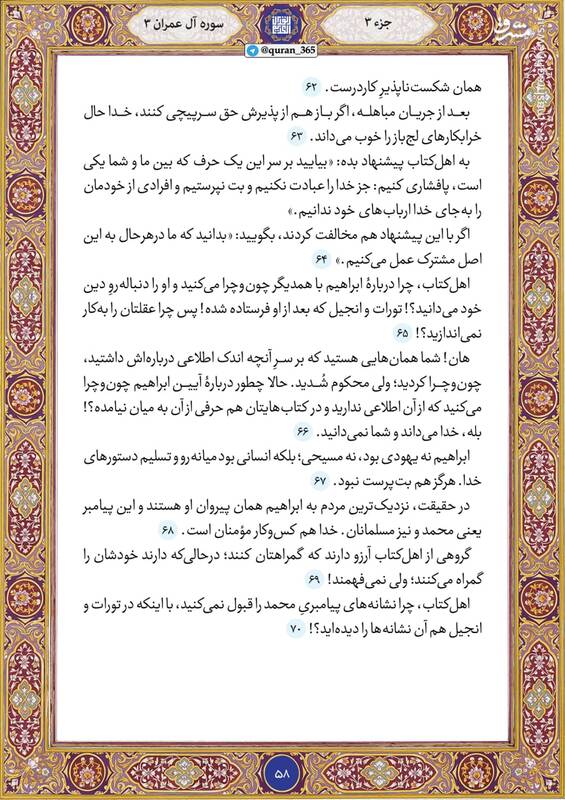 جزء ۳
سوره آل عمران ۳
@quran_365
همان شکست‌ناپذیرِ کاردرست. ۶۲
بعد از جریان مباهله، اگر باز هم از پذیرش حق سرپیچی کنند، خدا حال
خرابکارهای لج‌باز را خوب می‌داند. ۶۳
به اهل‌کتاب پیشنهاد بده: «بیایید بر سر این یک حرف که بین ما و شما یکی
است، پافشاری کنیم: جز خدا را عبادت نکنیم و بت نپرستیم و افرادی از خودمان
را به‌جای خدا ارباب‌های خود ندانیم.»
اگر با این پیشنهاد هم مخالفت کردند، بگویید: «بدانید که ما درهرحال به این
اصل مشترک عمل می‌کنیم.» ۶۴
اهل‌کتاب، چرا دربارهٔ ابراهیم با همدیگر چون‌وچرا می‌کنید و او را دنباله‌روِ دین
خود می‌دانید؟! تورات و انجیل که بعد از او فرستاده شده! پس چرا عقلتان را به‌کار
نمی‌اندازید؟! ۶۵
هان! شما همان‌هایی هستید که بر سرِ آنچه اندک اطلاعی درباره‌اش داشتید،
چون‌وچرا کردید؛ ولی محکوم شُدید. حالا چطور دربارهٔ آیین ابراهیم چون‌وچرا
می‌کنید که از آن اطلاعی ندارید و در کتاب‌هایتان هم حرفی از آن به میان نیامده؟!
بله، خدا می‌داند و شما نمی‌دانید. ۶۶
ابراهیم نه یهودی بود، نه مسیحی؛ بلکه انسانی بود میانه‌رو و تسلیم دستورهای
خدا. هرگز هم بت‌پرست نبود. ۶۷
در حقیقت، نزدیک‌ترین مردم به ابراهیم همان پیروان او هستند و این پیامبر
یعنی محمد و نیز مسلمانان. خدا هم کس‌وکار مؤمنان است. ۶۸
گروهی از اهل‌کتاب آرزو دارند که گمراهتان کنند؛ درحالی‌که دارند خودشان را
گمراه می‌کنند؛ ولی نمی‌فهمند! ۶۹
اهل‌کتاب، چرا نشانه‌های پیامبریِ محمد را قبول نمی‌کنید، با اینکه در تورات و
انجیل هم آن نشانه‌ها را دیده‌اید؟! ۷۰
۵۸